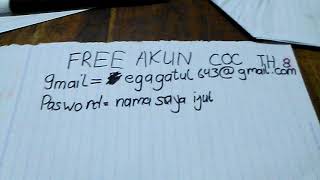 FREE AKUN COC TH 8
gmail = egagatul643@gmail.com
Pasword = nama saya ijul